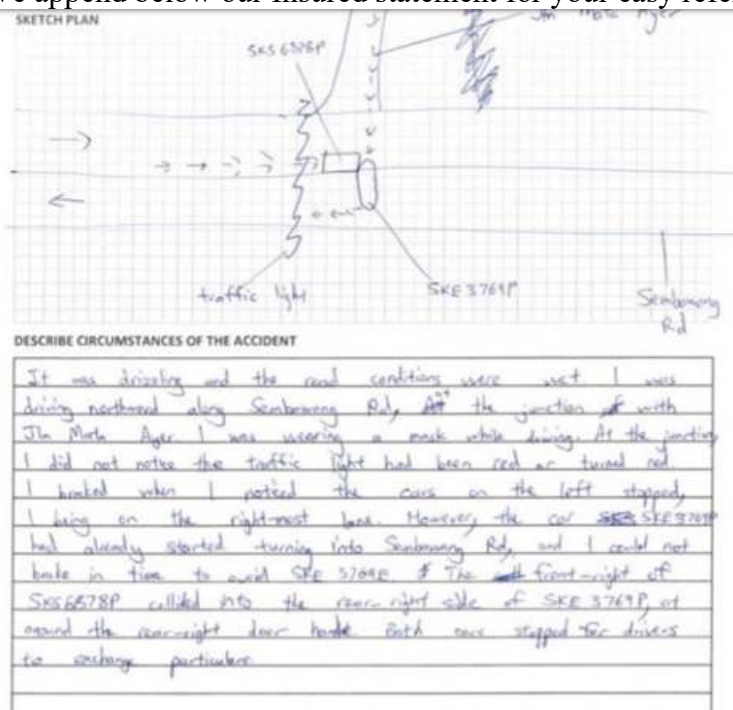 We append below our insured statement for your easy refer
SKETCH PLAN
Jln Mata Ayer
SKS 6578P
traffic light
SKE 3769P
Sembawang
Rd
DESCRIBE CIRCUMSTANCES OF THE ACCIDENT
It was drizzling and the road conditions were wet I was
driving northward along Sembawang Rd, At the junction with
Jln Mata Ayer I was wearing a mask while driving. At the junction,
I did not notice the traffic light had been red or turned red.
I braked when I noticed the cars on the left stopped,
I being on the right-most lane. However, the car SKE 3769P
had already started turning into Sembawang Rd, and I could not
brake in time to avoid SKE 3769E. The front-right of
SKS6578P collided into the rear-right side of SKE 3769P, at
around the rear-right door handle. Both cars stopped for drivers
to exchange particulars